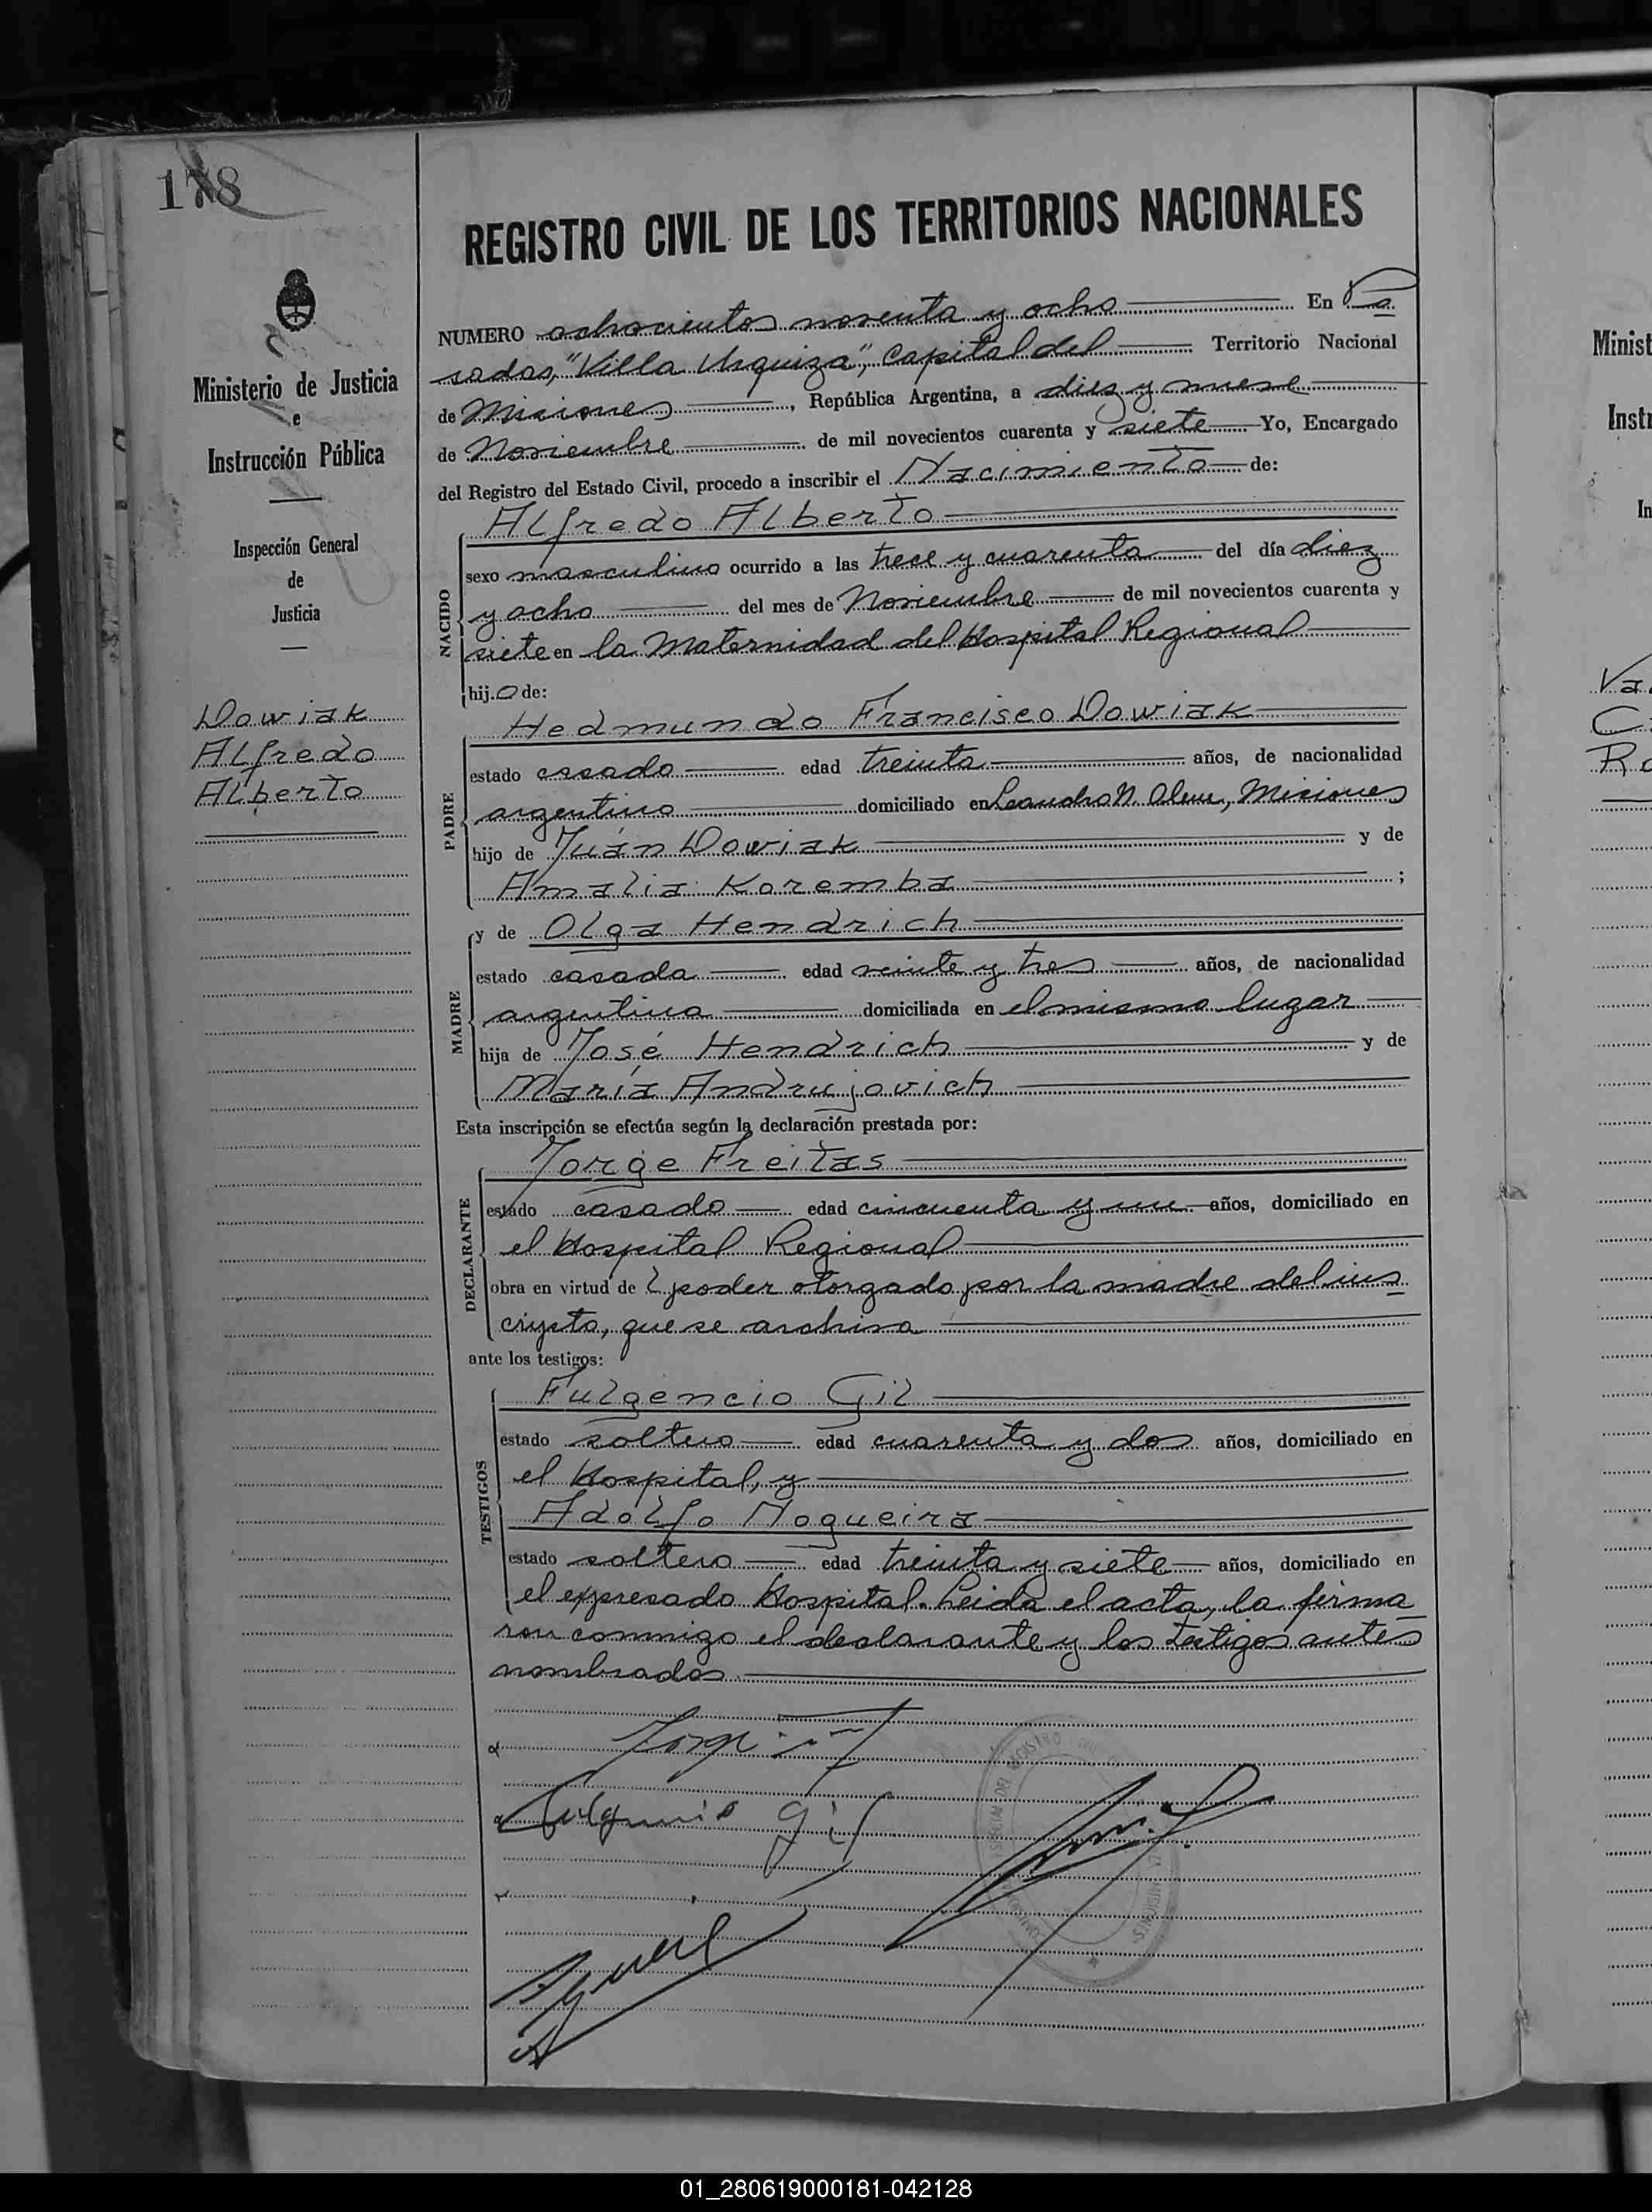 178
REGISTRO CIVIL DE LOS TERRITORIOS NACIONALES
Ministerio de Justicia
e
Instrucción Pública
Inspección General
de
Justicia
Dowiak
Alfredo
Alberto
NUMERO ochocientos noventa y ocho En Po
sadas, "Villa Urquiza", Capital del Territorio Nacional
de Misiones, República Argentina, a diez y nueve
de Noviembre de mil novecientos cuarenta y siete Yo, Encargado
del Registro del Estado Civil, procedo a inscribir el Nacimiento de:
Alfredo Alberto
NACIDO
sexo masculino ocurrido a las trece y cuarenta del día diez
y ocho del mes de Noviembre de mil novecientos cuarenta y
siete en la Maternidad del Hospital Regional
hijo de:
Hedmundo Francisco Dowiak
PADRE
estado casado edad treinta años, de nacionalidad
argentino domiciliado en Leandro N. Alem, Misiones
hijo de Juán Dowiak y de
Amalia Koremba ;
MADRE
y de Olga Hendrich
estado casada edad veinte y tres años, de nacionalidad
argentina domiciliada en el mismo lugar
hija de José Hendrich y de
María Andrujovich
Esta inscripción se efectúa según la declaración prestada por:
Jorge Freitas
DECLARANTE
estado casado edad cincuenta y un años, domiciliado en
el Hospital Regional
obra en virtud de poder otorgado por la madre del ins
cripto, que se archiva
ante los testigos:
Fulgencio Gil
TESTIGOS
estado soltero edad cuarenta y dos años, domiciliado en
el Hospital, y
Adolfo Nogueira
estado soltero edad treinta y siete años, domiciliado en
el expresado Hospital. Leída el acta, la firma
ron conmigo el declarante y los testigos antes
nombrados
Fulgencio Gil
Minist
Instr
In
Va
C
Ro
01_280619000181-042128